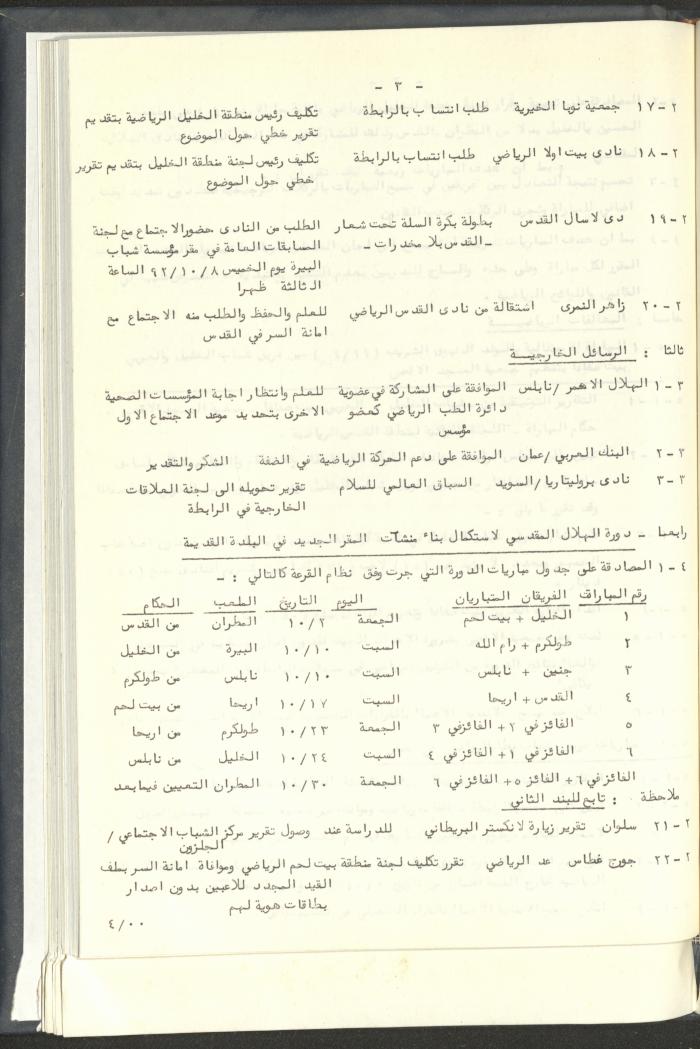 - ٣ -
٢-١٧ جمعية نوبا الخيرية طلب انتساب بالرابطة تكليف رئيس منطقة الخليل الرياضية بتقديم
تقرير خطي حول الموضوع
٢-١٨ نادى بيت اولا الرياضي طلب انتساب بالرابطة تكليف رئيس لجنة منطقة الخليل بتقديم تقرير
خطي حول الموضوع
٢-١٩ دى لاسال القدس بطولة بكرة السلة تحت شعار الطلب من النادى حضور الاجتماع مع لجنة
- القدس بلا مخدرات - المسابقات العامة في مقر مؤسسة شباب
البيرة يوم الخميس ٩٢/١٠/٨ الساعة
الثالثة ظهرا
٢-٢٠ زاهر النمرى استقالة من نادى القدس الرياضي للعلم والحفظ والطلب منه الاجتماع مع
امانة السر في القدس
ثالثا : الرسائل الخارجيـــة
٣-١ الهلال الاحمر / نابلس الموافقة على المشاركة في عضوية للعلم وانتظار اجابة المؤسسات الصحية
دائرة الطب الرياضي كعضو الاخرى بتحديد موعد الاجتماع الاول
مؤسس
٣-٢ البنك العربي / عمان الموافقة على دعم الحركة الرياضية في الضفة الشكر والتقدير
٣-٣ نادى بروليتاريا / السويد السباق العالمي للسلام تقرير تحويله الى لجنة العلاقات
الخارجية في الرابطة
رابعا - دورة الهلال المقدسي لاستكمال بناء منشآت المقر الجديد في البلدة القديمة
٤-١ المصادقة على جدول مباريات الدورة التي جرت وفق نظام القرعة كالتالي : -
رقم المباراة الفريقان المتباريان اليوم التاريخ الملعب الحكام
١ الخليل + بيت لحم الجمعة ١٠/٢ المطران من القدس
٢ طولكرم + رام الله السبت ١٠/١٠ البيرة من الخليل
٣ جنين + نابلس السبت ١٠/١٠ نابلس من طولكرم
٤ القدس + اريحا السبت ١٠/١٧ اريحا من بيت لحم
٥ الفائز في ٢ + الفائز في ٣ الجمعة ١٠/٢٣ طولكرم من اريحا
٦ الفائز في ١ + الفائز في ٤ السبت ١٠/٢٤ الخليل من نابلس
الفائز في ٦ + الفائز ٥ + الفائز في ٦ الجمعة ١٠/٣٠ المطران التعيين فيما بعد
ملاحظة : تابع للبند الثاني
٢-٢١ سلوان تقرير زيارة لانكستر البريطاني للدراسة عند وصول تقرير مركز الشباب الاجتماعي /
الجلزون
٢-٢٢ جورج غطاس عد الرياضي تقرر تكليف لجنة منطقة بيت لحم الرياضي وموافاة امانة السر بملف
القيد المجدد للاعبين بدون اصدار
بطاقات هوية لهم
٤/٠٠